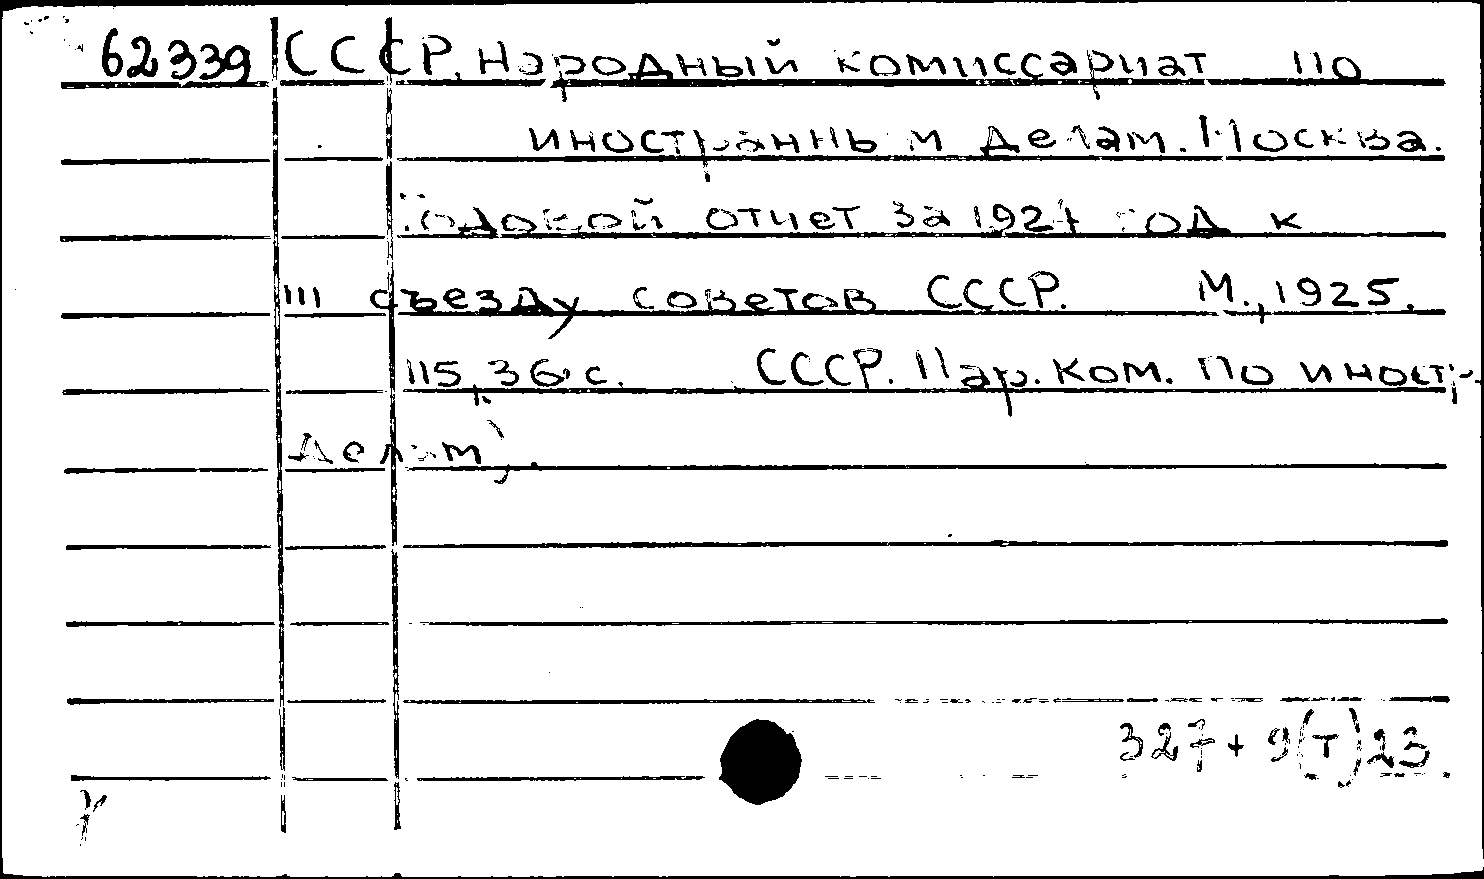 62339 СССР. Народный комиссариат по
иностранным делам. Москва.
Годовой отчет за 1924 год к
III съезду советов СССР. М., 1925.
115, 36 с. СССР. Нар. Ком. по иностр.
делам).
327+9(Т)23.